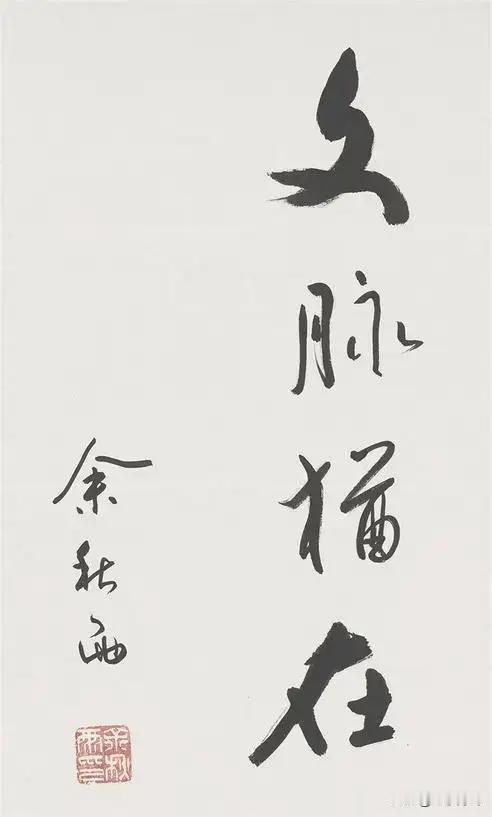 文脉犹在
余秋雨